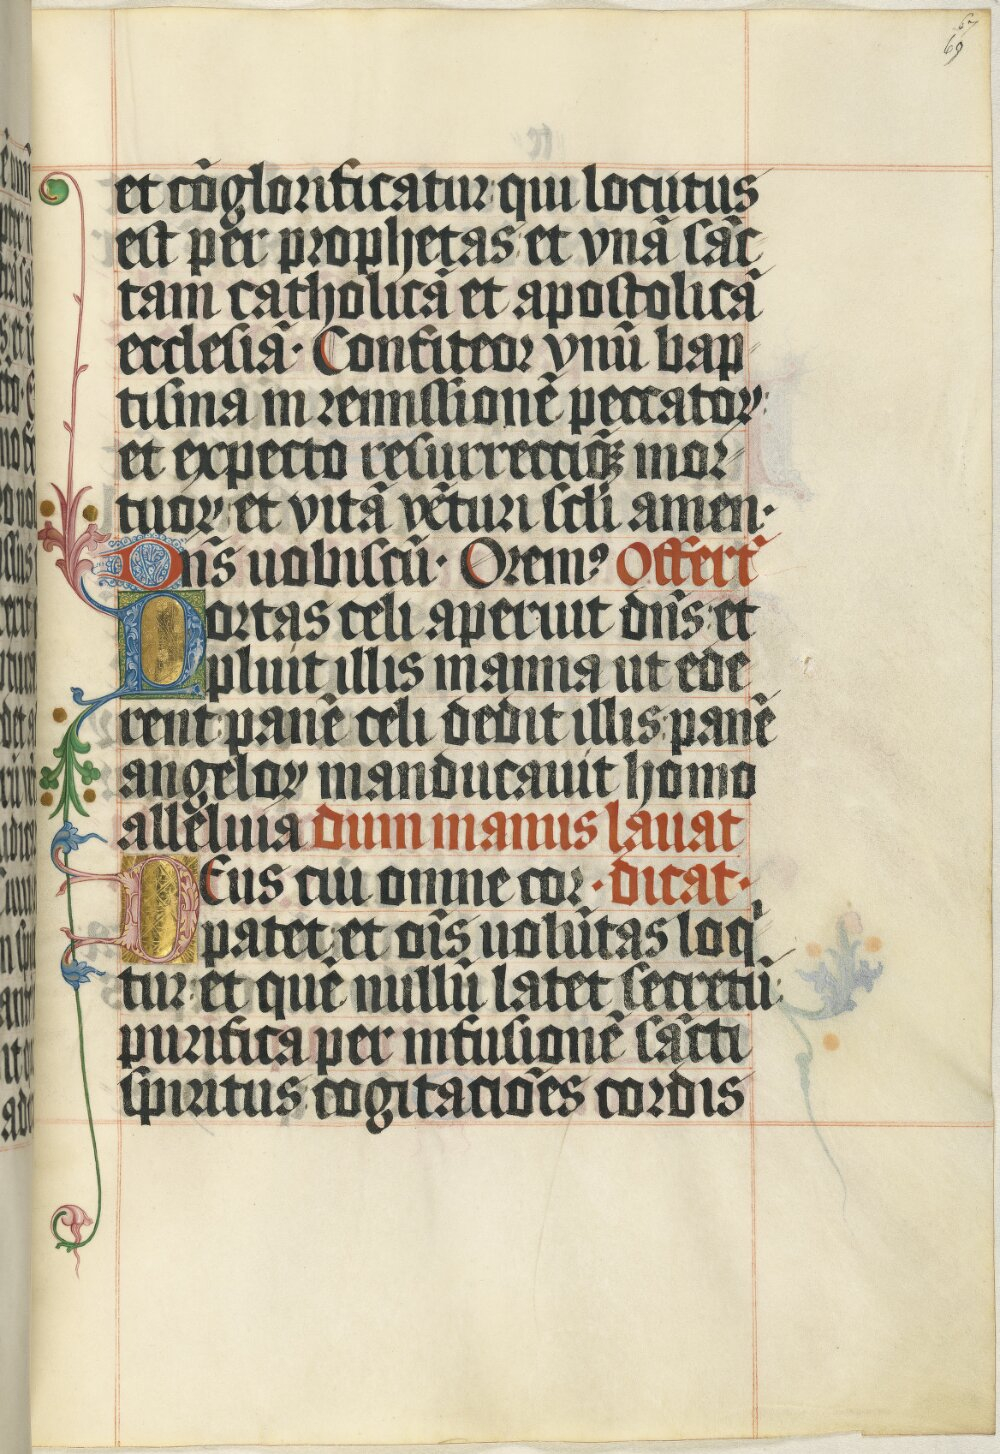 67
69
et cōglorificatur qui locutus
est per prophetas et vnā sāc
tam catholicā et apostolicā
ecclesiā· Confiteor vnū bap
tisma in remissionē peccatoꝝ
et expecto resurrecciōꝫ mor
tuoꝝ et vitā vēturi scl̄i amen·
Dn̄s uobiscū· Oremꝰ Offert̄
Portas celi aperuit dn̄s et
pluit illis manna ut ede
rent panē celi dedit illis panē
angeloꝝ manducauit homo
alleluia dum manus lauat
DEus cui omne cor · dicat·
patet et oīs uolūtas loq̄
tur et quē nullū latet secretū
purifica per infusionē sācti
spiritus cogitacioēs cordis